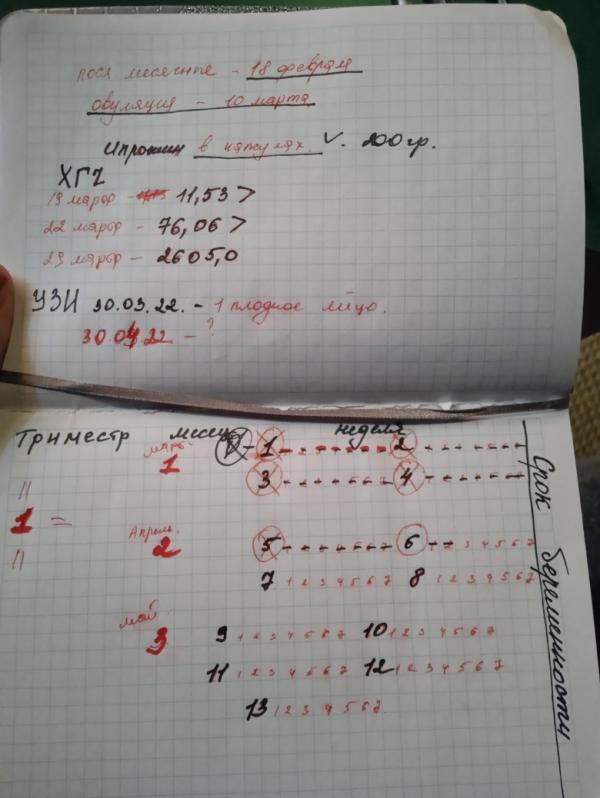 посл месячные - 18 февраля
овуляция - 10 марта
в капсулах. V. 200 гр.
ХГЧ
19 марта - 11,53 >
22 марта - 76,06 >
29 марта - 2605,0
УЗИ 30.03.22. - 1 плодное яйцо.
30.04.22 - ?
Триместр месяц неделя
Срок беременности
март. 1
1 2
3 4
" 1 = "
Апрель. 2
5 6 3 4 5 6 7
7 1 2 3 4 5 6 7 8 1 2 3 4 5 6 7
май 3
9 1 2 3 4 5 6 7 10 1 2 3 4 5 6 7
11 1 2 3 4 5 6 7 12 1 2 3 4 5 6 7
13 1 2 3 4 5 6 7